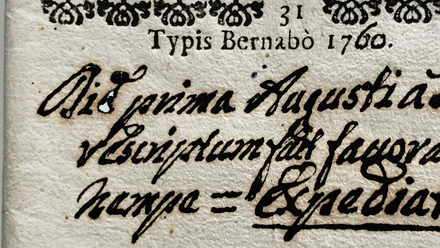 31
Typis Bernabò 1760.
Die prima Augusti à
rescriptum fuit favora
nempe = Expedian